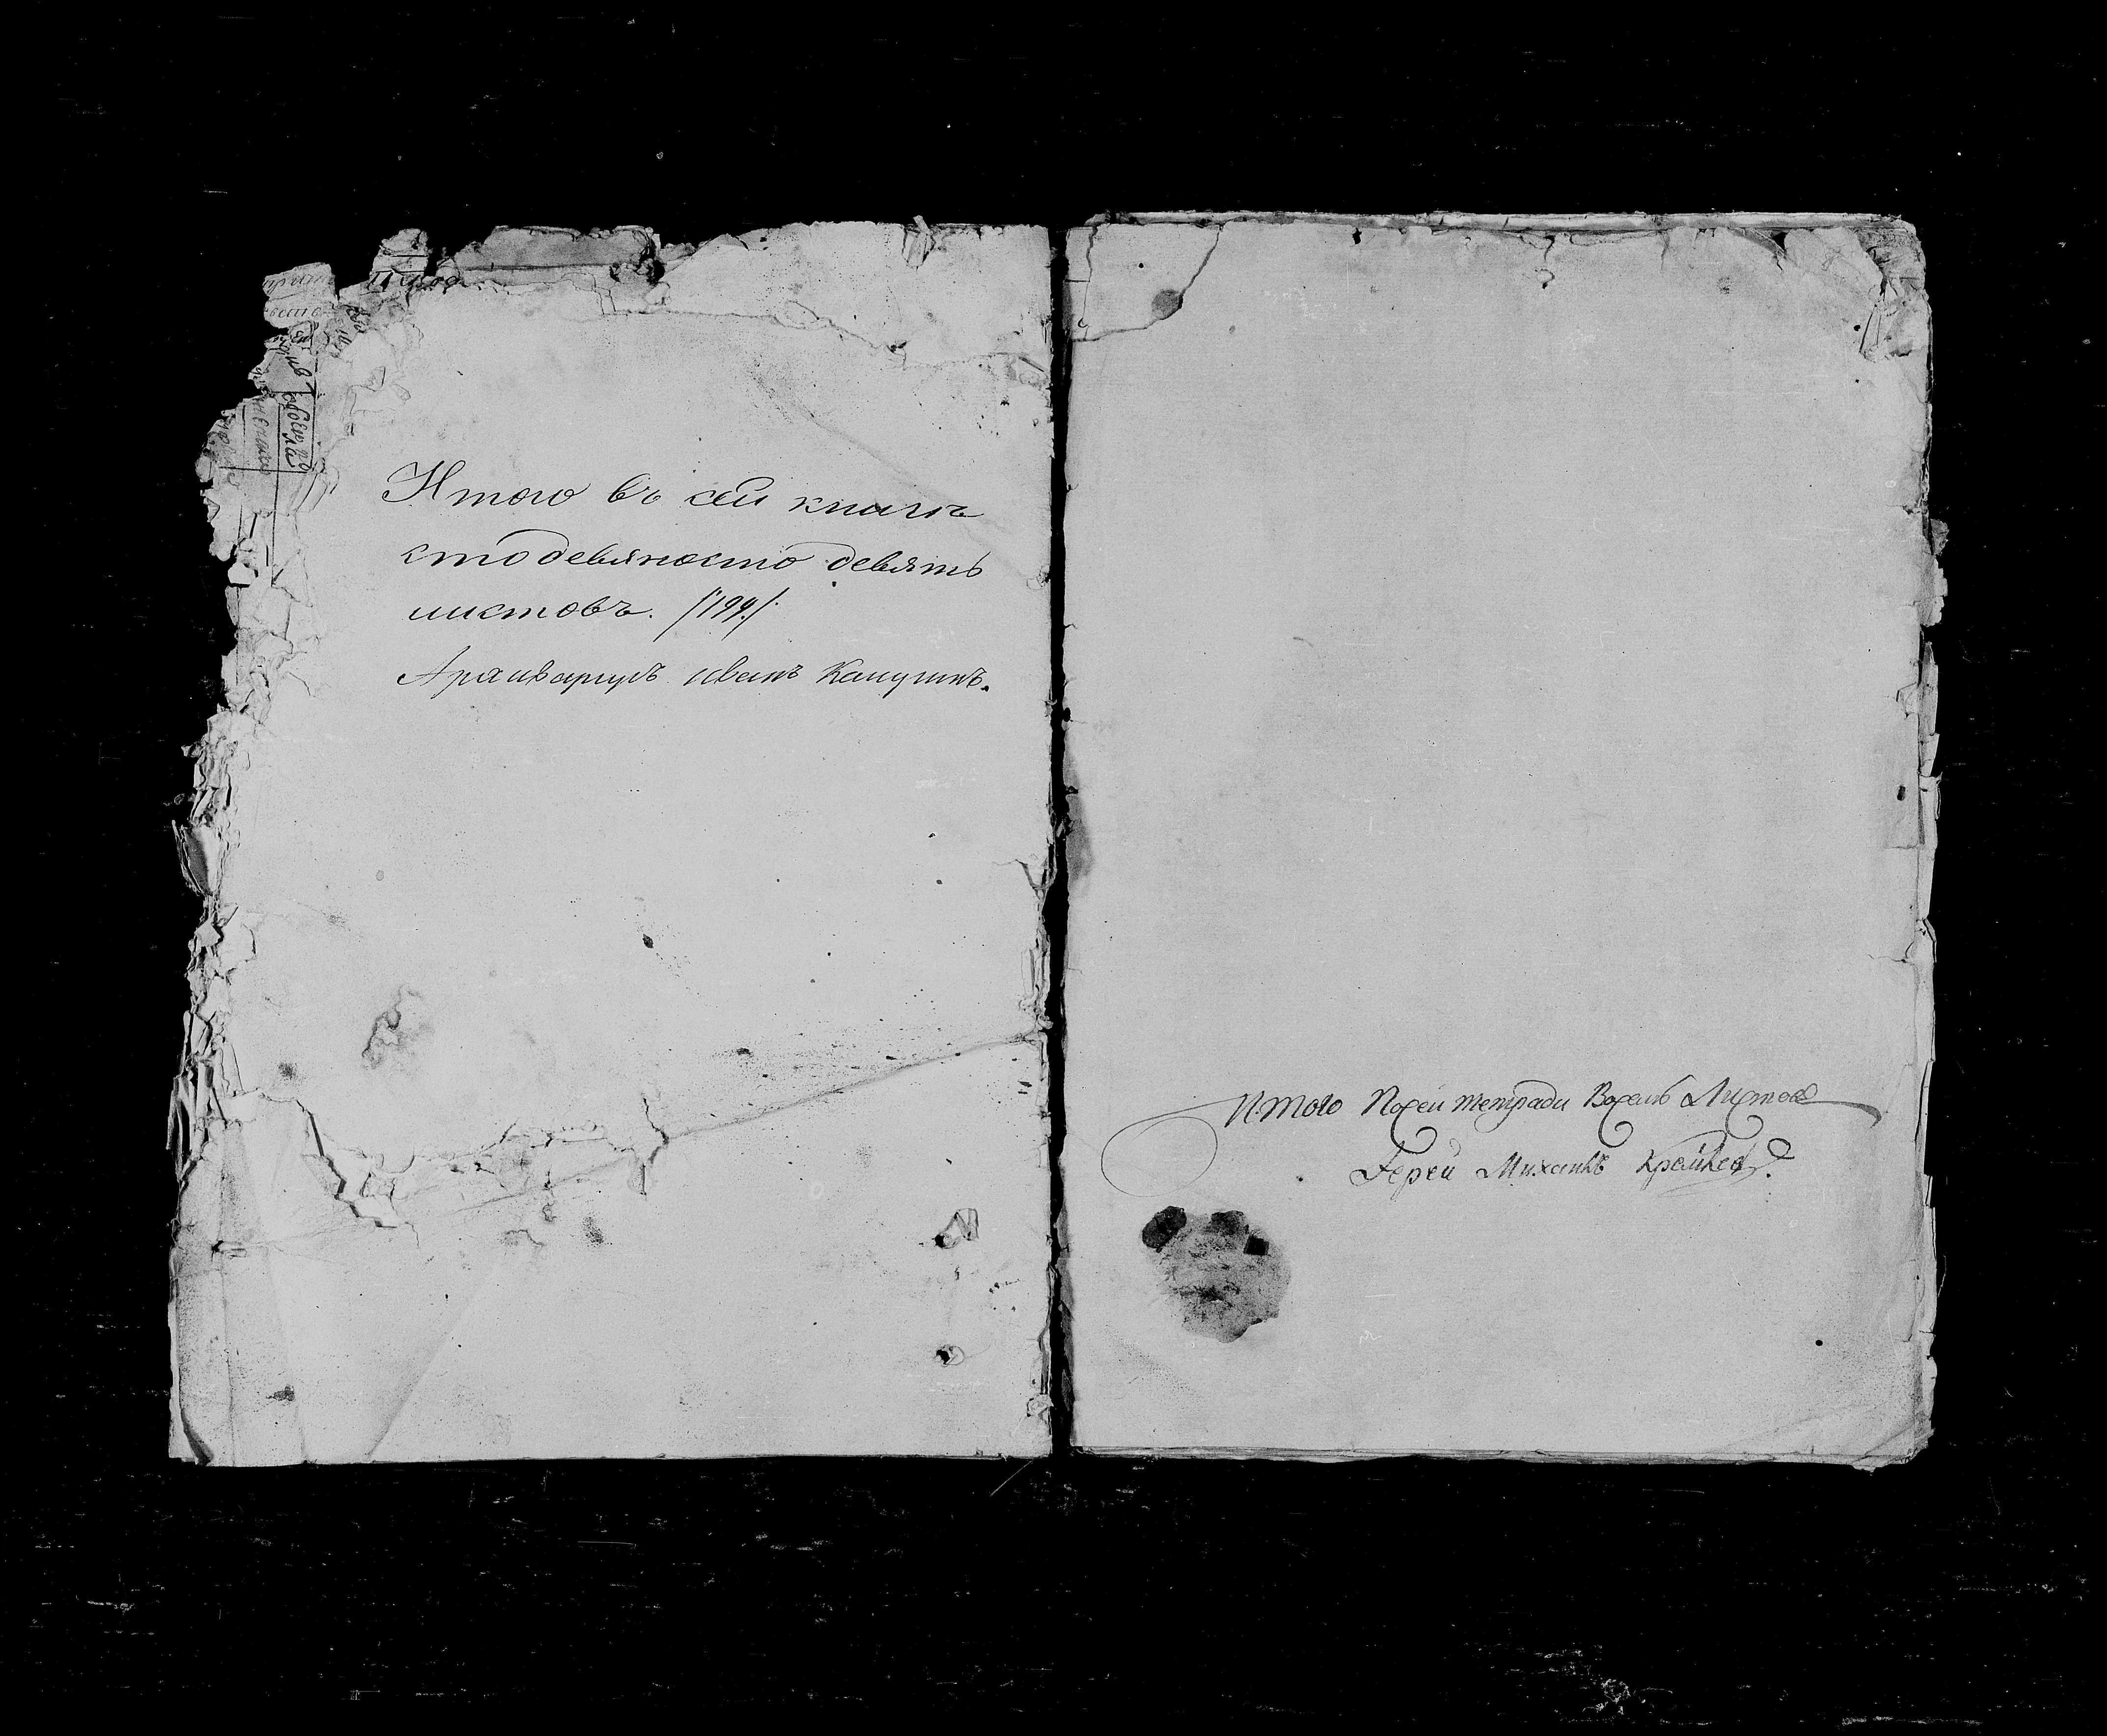 Итого въ сей книгѣ
сто девяносто девять
листовъ. /199/.
Архиваріусъ Иванъ
Итого Посей тетради Восемь Листовъ
Іерей Михаилъ